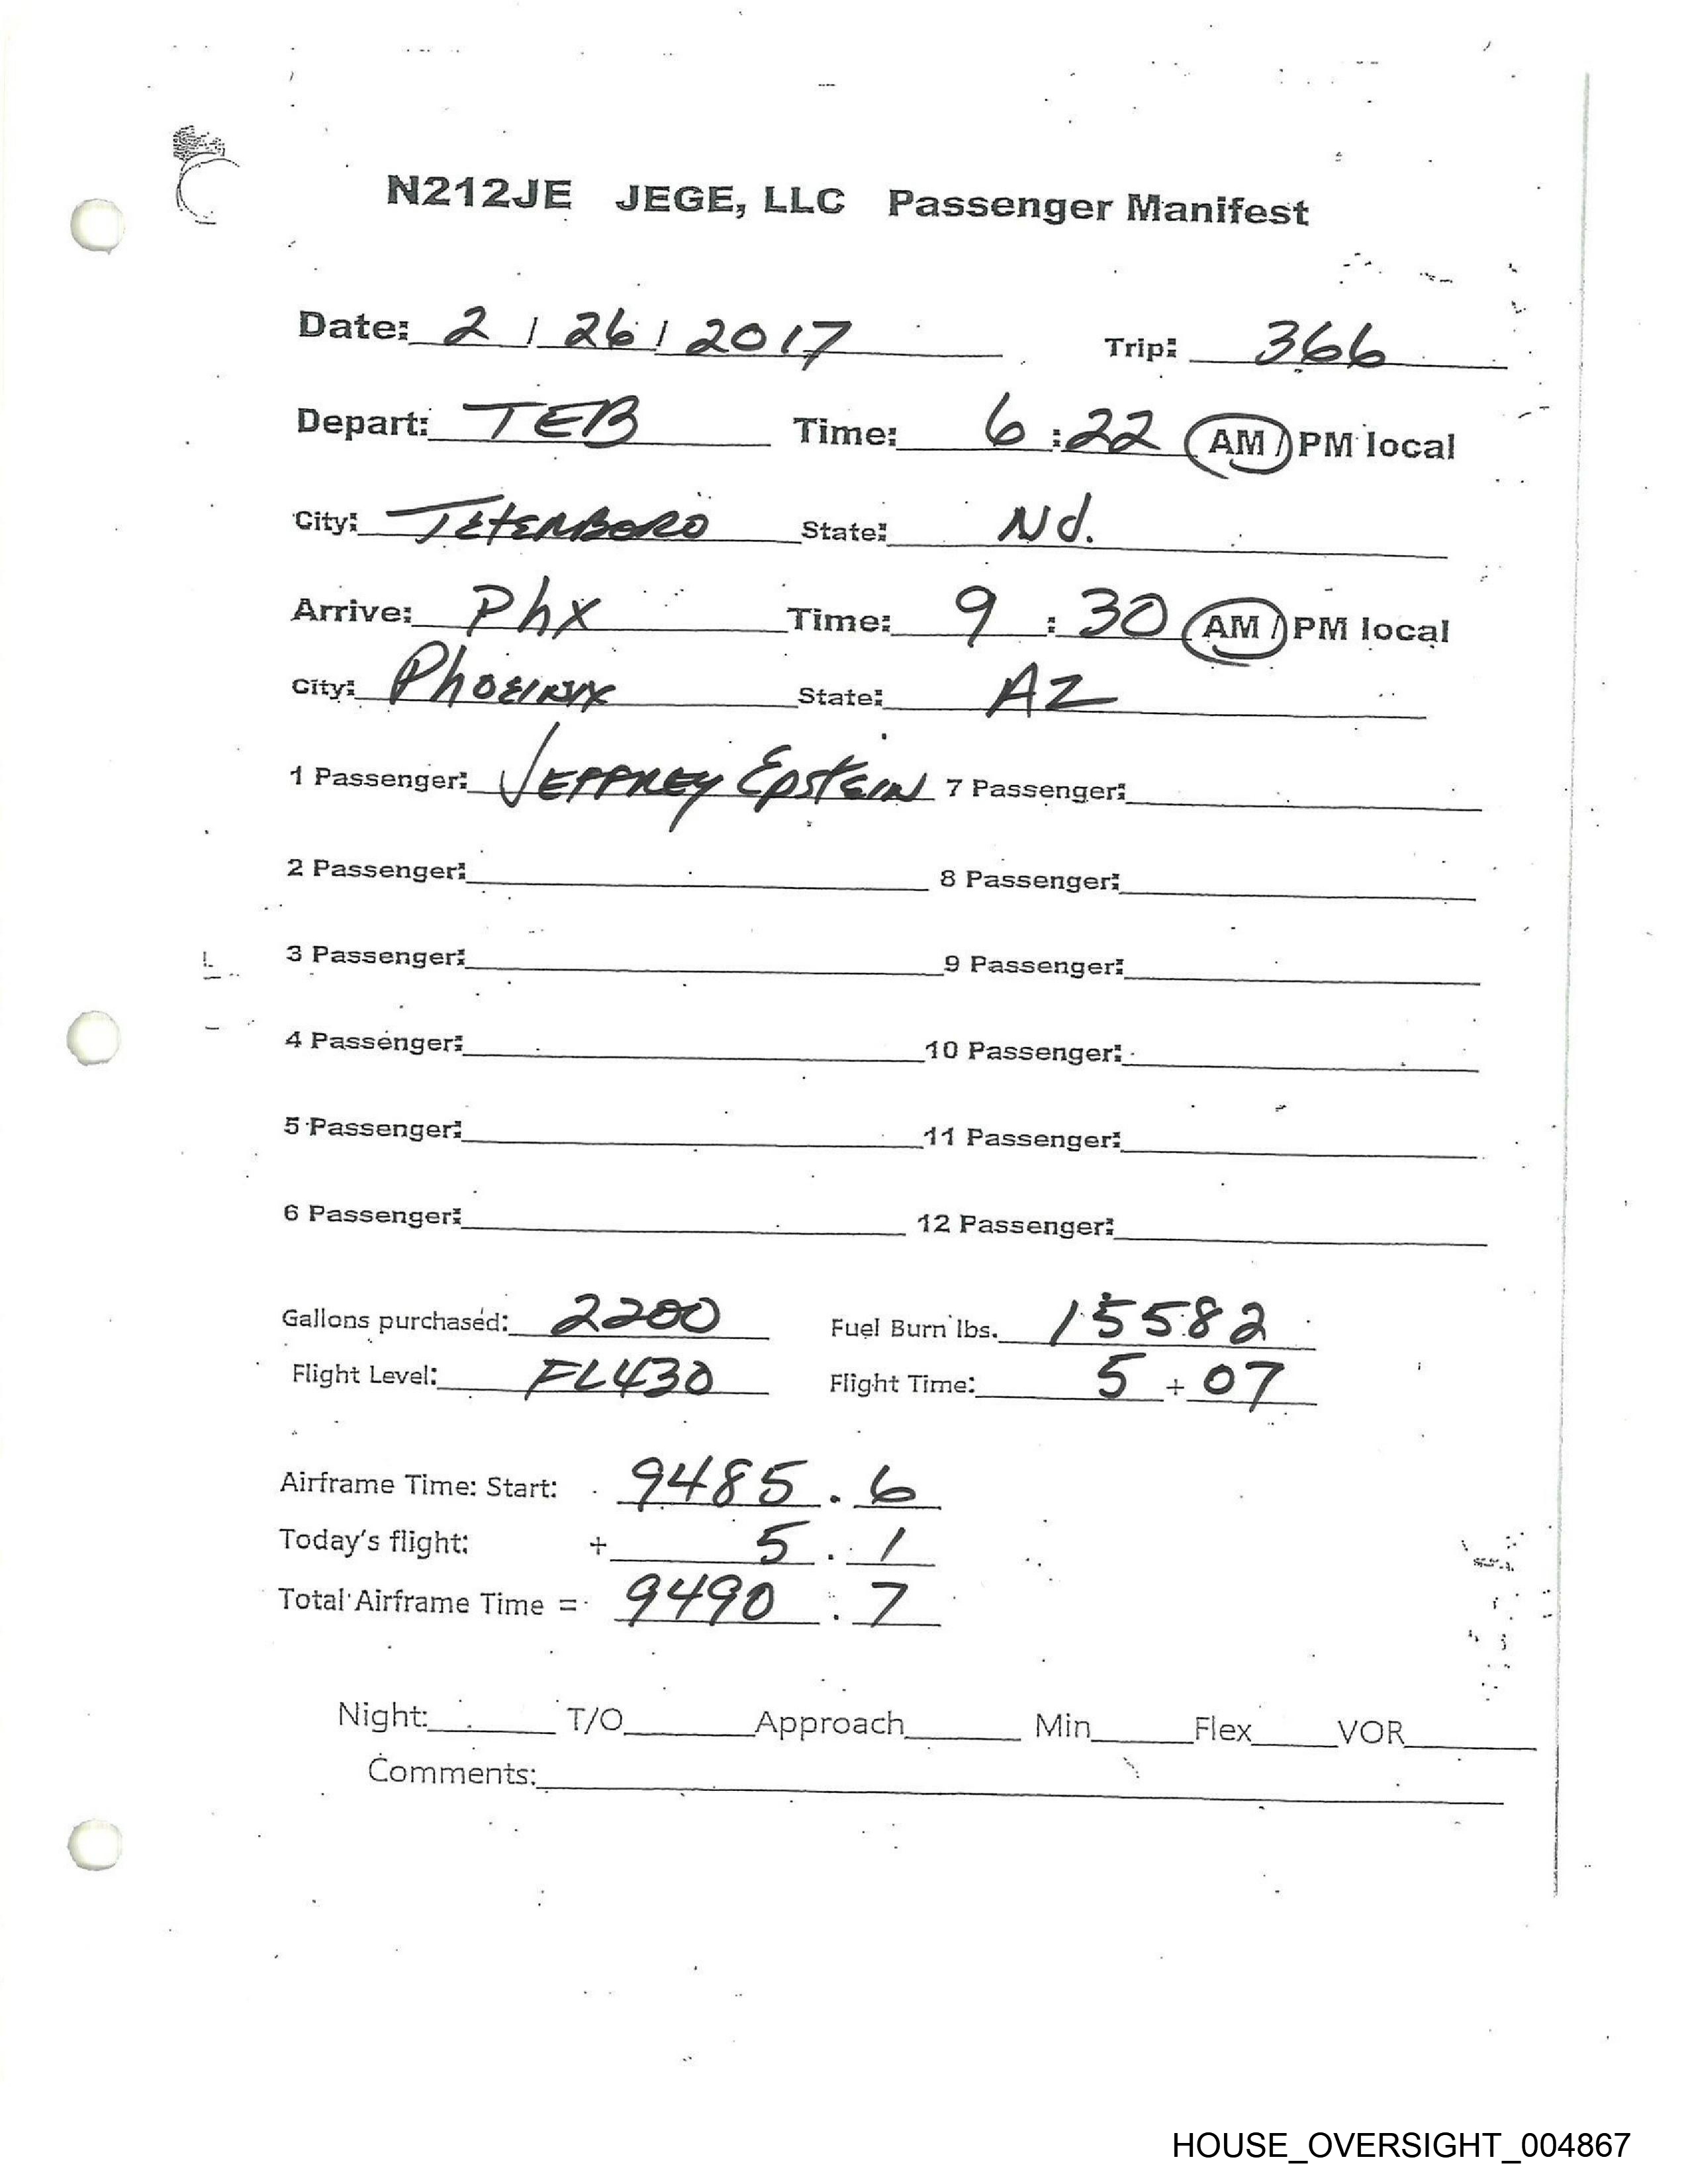 N212JE JEGE, LLC Passenger Manifest
Date: 2 / 26 / 2017 Trip: 366
Depart: TEB Time: 6 : 22 AM / PM local
City: TETERBORO State: NJ.
Arrive: Phx Time: 9 : 30 AM / PM local
City: PhOEINIX State: AZ
1 Passenger: JEFFREY EpstEIN 7 Passenger:
2 Passenger: 8 Passenger:
3 Passenger: 9 Passenger:
4 Passenger: 10 Passenger:
5 Passenger: 11 Passenger:
6 Passenger: 12 Passenger:
Gallons purchased: 2200 Fuel Burn lbs. 15582
Flight Level: FL430 Flight Time: 5 + 07
Airframe Time: Start: 9485 . 6
Today's flight: + 5 . 1
Total Airframe Time = 9490 . 7
Night: T/O Approach Min Flex VOR
Comments:
HOUSE_OVERSIGHT_004867